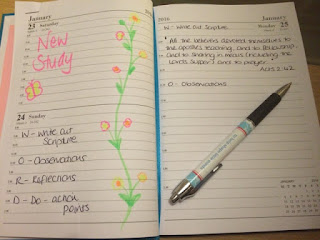 January
23 Saturday
New
Study
24 Sunday
W - Write out
Scripture
O - Observations
R - Reflections
D - Do - action
points
2016
January
Monday 25
W - Write out Scripture
'All the believers devoted themselves to
the apostles teaching, and to fellowship,
and to sharing in meals (including the
Lord's Supper) and to prayer.'
Acts 2:42
O - Observations